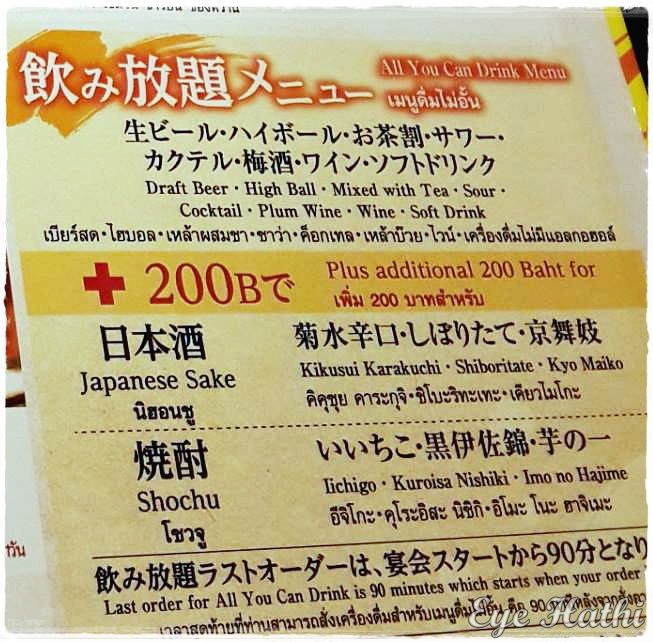 飲み放題メニュー All You Can Drink Menu
เมนูดื่มไม่อั้น
生ビール・ハイボール・お茶割・サワー・
カクテル・梅酒・ワイン・ソフトドリンク
Draft Beer・High Ball・Mixed with Tea・Sour・
Cocktail・Plum Wine・Wine・Soft Drink
เบียร์สด・ไฮบอล・เหล้าผสมชา・ซาว่า・ค็อกเทล・เหล้าบ๊วย・ไวน์・เครื่องดื่มไม่มีแอลกอฮอล์
+ 200Bで Plus additional 200 Baht for
เพิ่ม 200 บาทสำหรับ
日本酒 菊水辛口・しぼりたて・京舞妓
Japanese Sake Kikusui Karakuchi・Shiboritate・Kyo Maiko
นิฮอนชู คิคุซุย คาระกุจิ・ชิโบะริทะเทะ・เคียวไมโกะ
焼酎 いいちこ・黒伊佐錦・芋の一
Shochu Iichigo・Kuroisa Nishiki・Imo no Hajime
โชวจู อีจิโกะ・คุโระอิสะ นิชิกิ・อิโมะ โนะ ฮาจิเมะ
วัน
飲み放題ラストオーダーは、宴会スタートから90分となり
Last order for All You Can Drink is 90 minutes which starts when your order
เวลาสุดท้ายที่ท่านสามารถสั่งเครื่องดื่มสำหรับเมนูดื่มไม่อั้น คือ 90
Eye Hathi